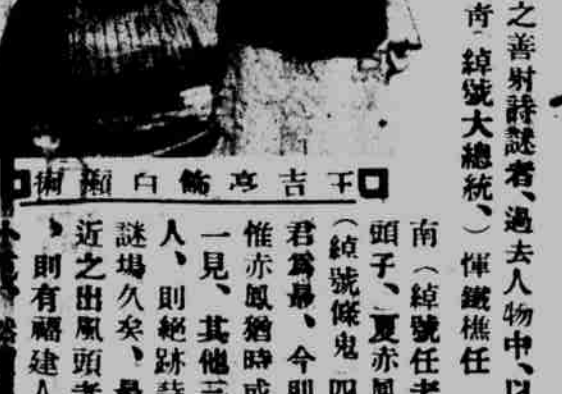 之善射詩謎者、過去人物中、以
綽號大總統、）惲鐵樵任
南（綽號任老
頭子、夏赤鳳
（綽號條鬼 四
君爲最、今則
惟赤鳳猶時或
一見、其他三
人、則絕跡
謎場久矣、最
近之出風頭者
、則有福建人
吉亭飾白